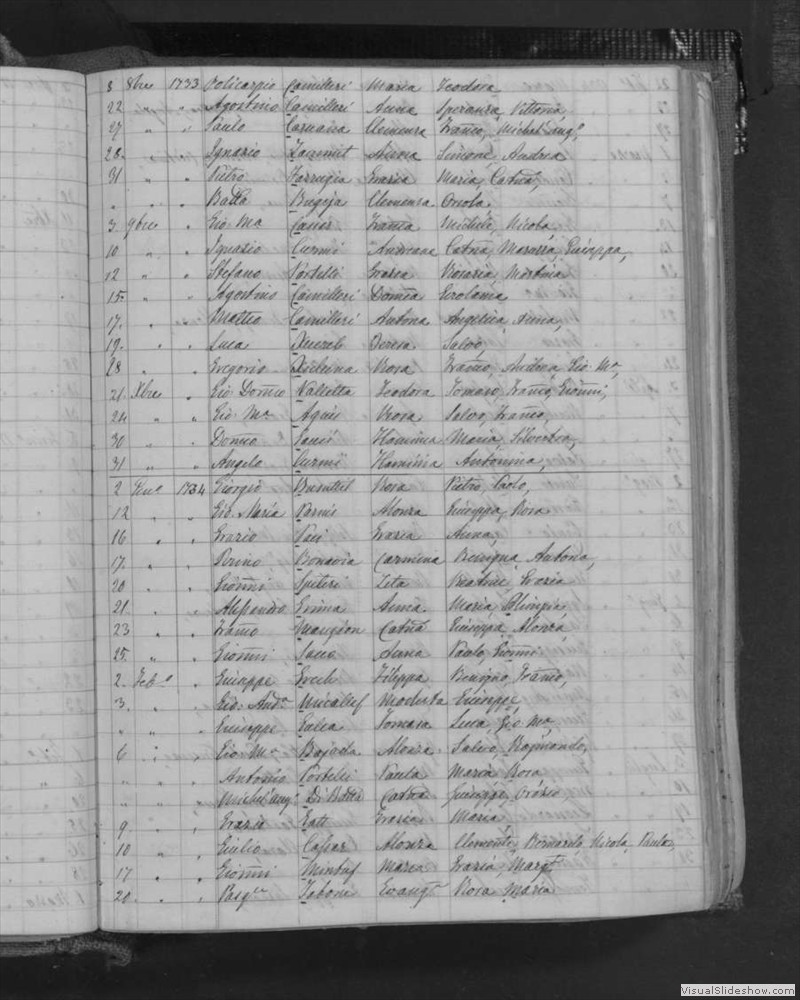 8 8bre 1733 Policarpio Camilleri Maria Teodora
22 " " Agostino Camilleri Anna Speranza, Vittoria,
27 " " Paulo Caruana Clemenza Franco, Michel'ang°,
28 " " Ignazio Zammit Anna Simone, Andrea
31 " " Pietro Farrugia Grazia Maria, Catña,
" " " Batta Bugeja Clemenza Orsola
3 9bre " Gio: Mª Franca Michele, Nicola
10 " " Ignazio Curmi Andreana Catña, Giuseppa,
12 " " Stefano Portelli Grazia Vioraria, Martina
15 " " Agostino Camilleri Domca Girolama
17 " " Matteo Camilleri Antona Angelica, Anna,
19 " " Luca Xuereb Teresa Salvo,
28 " " Gregorio Xiberina Rosa Franco, Andrea, Gio: Mª,
21 Xbre " Gio: Domco Valletta Teodora Tomaso, Franco, Gionni,
24 " " Gio: Mª Agius Rosa Salvo, Franco,
30 " " Domco Flaminia Maria, Silvestra,
31 " " Angelo Curmi Flaminia Antonina,
2 Gen° 1734 Giorgio Busuttil Rosa Pietro, Paolo,
12 " " Gio: Maria Alonza Giuseppa, Rosa
16 " " Grazio Grazia Anna,
17 " " Bonavia Carmina Benigna, Antona,
20 " " Gionni Spiteri Zita Beatrice, Grazia
21 " " Alessandro Anna Maria, Olimpia,
23 " " Franco Mangion Catña Giuseppa, Alonza,
25 " " Gionni Anna Paolo, Gionni
2 Feb° " Giuseppe Filippa Benigno, Franco,
3 " " Gio: Andª Micallef Modesta Giuseppe,
" " " Giuseppe Galea Tomasa Luca, Gio: Mª,
6 " " Gio: Mª Bajada Alonza Salvo, Rajmondo,
" " " Antonio Portelli Paula Maria, Rosa
" " " Michel'ang° Di Batta Catña Giuseppe,
9 " " Grazio Gatt Grazia Maria
10 " " Giulio Casar Alonza Clemente, Bernardo, Nicola, Paulo,
17 " " Gionni Mintuf Maria Grazia, Margta
20 " " Pasqle Tabone Evangta Rosa, Maria
VisualSlideshow.com